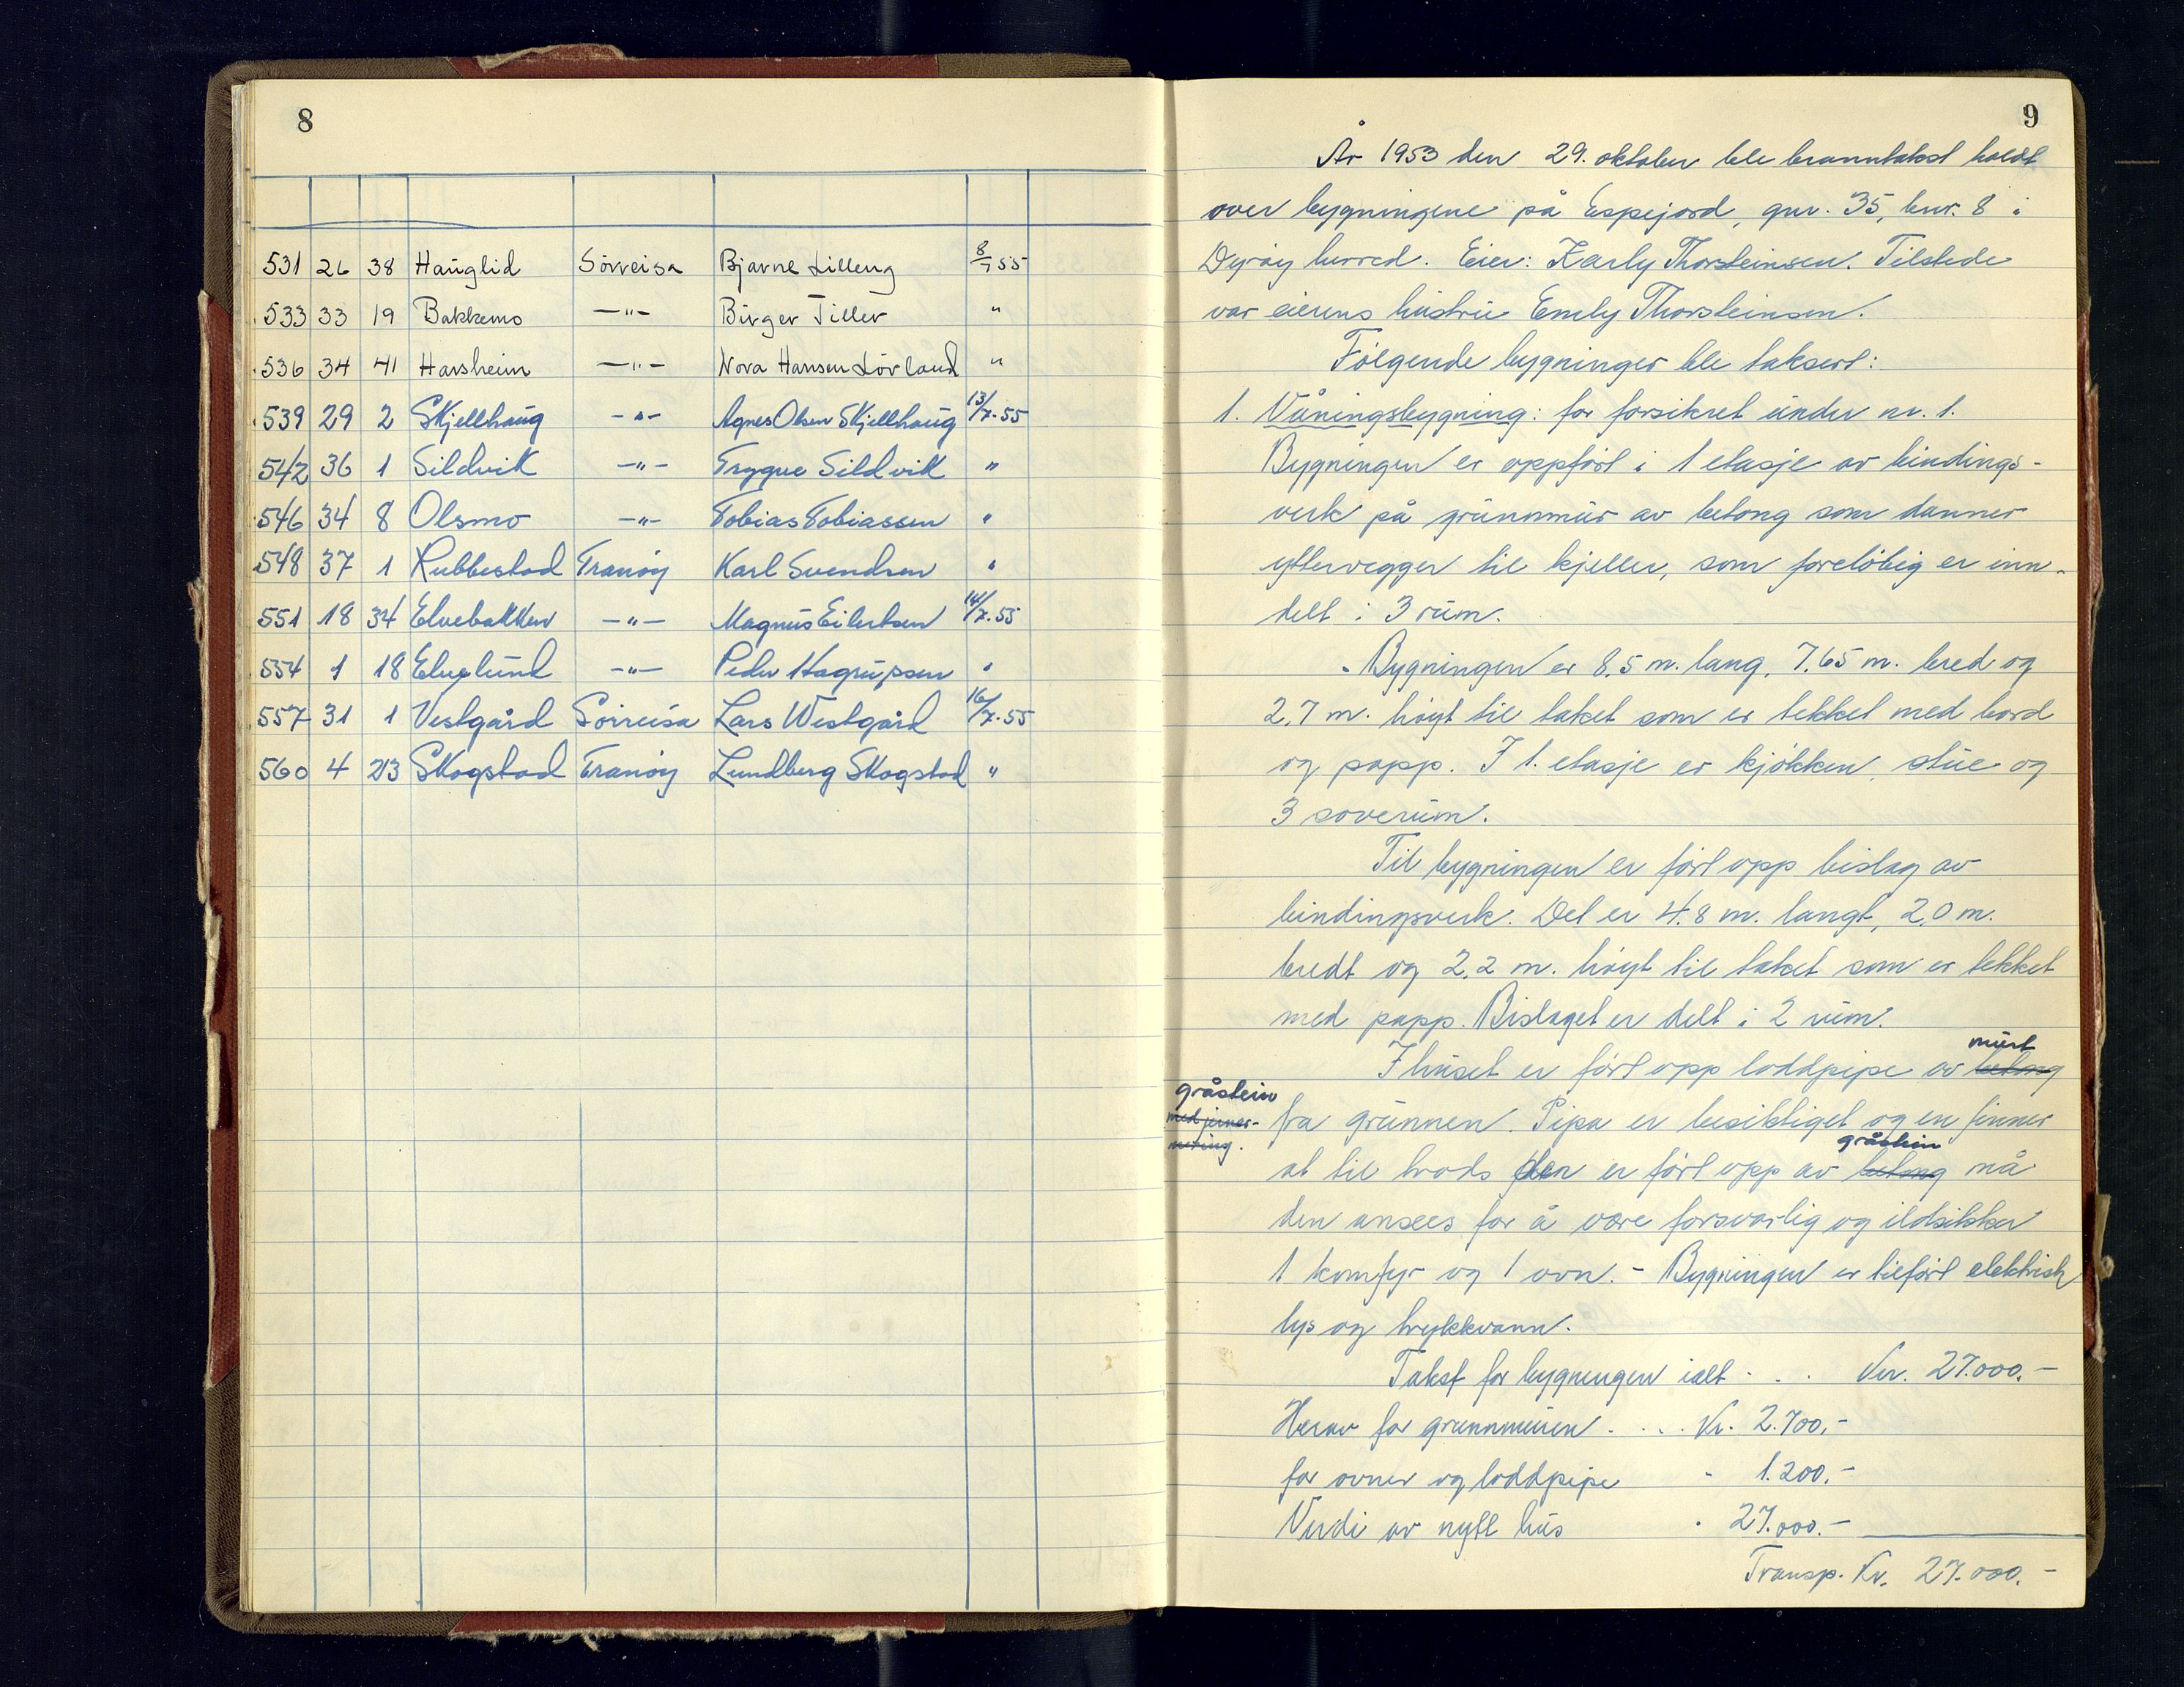 8
531 26 38 Hauglid Sörreisa Bjarne Lilleng 8/7 55
533 33 19 Bakkemo —"— Birger Tiller "
536 34 41 Harsheim —"— Nora Hansen Lövland "
539 29 2 Skjellhaug —"— Agnes Olsen Skjellhaug 13/7.55
542 36 1 Sildvik —"— Trygve Sildvik "
546 34 8 Olsmo —"— Tobias Tobiassen "
548 37 1 Rubbestad Tranöy Karl Svendsen "
551 18 34 Elvebakken —"— Magnus Eilertsen 14/7.55
554 1 18 Elvelund —"— Peder Hagrupsen "
557 31 1 Vestgård Sörreisa Lars Westgård 16/7.55
560 4 213 Skogstad Tranöy Lundberg Skogstad "
9
År 1953 den 29. oktober ble branntakst holdt
over bygningene på Espejord, gnr. 35, bnr. 8 i
Dyröy herred. Eier: Karly Thorsteinsen. Tilstede
var eierens hustru Emely Thorsteinsen.
Følgende bygninger ble taksert:
1. Våningsbygning: før forsikret under nr. 1.
Bygningen er oppfört i 1 etasje av bindings-
verk på grunnmur av betong som danner
yttervegger til kjeller, som foreløbig er inn-
delt i 3 rum.
Bygningen er 8,5 m. lang, 7,65 m. bred og
2,7 m. höyt til taket som er tekket med bord
og papp. I 1. etasje er kjökken, stue og
3 soverum.
Til bygningen er fört opp bislag av
bindingsverk. Det er 4,8 m. langt, 2,0 m.
bredt og 2,2 m. höyt til taket som er tekket
med papp. Bislaget er delt i 2 rum.
murt
I huset er fört opp loddpipe av betong
gråstein
med jernar-
mering.
fra grunnen. Pipa er besiktiget og en finner
gråstein
at til trods den er fört opp av betong må
den ansees for å være forsvarlig og ildsikker
1 komfyr og 1 ovn. - Bygningen er tilfört elektrisk
lys og trykkvann.
Takst for bygningen ialt . . . Kr. 27.000.-
Herav for grunnmuren . . . . Kr. 2.700,-
for ovner og loddpipe " 1.200.-
Verdi av nytt hus " 27.000.-
Transp. Kr. 27.000.-